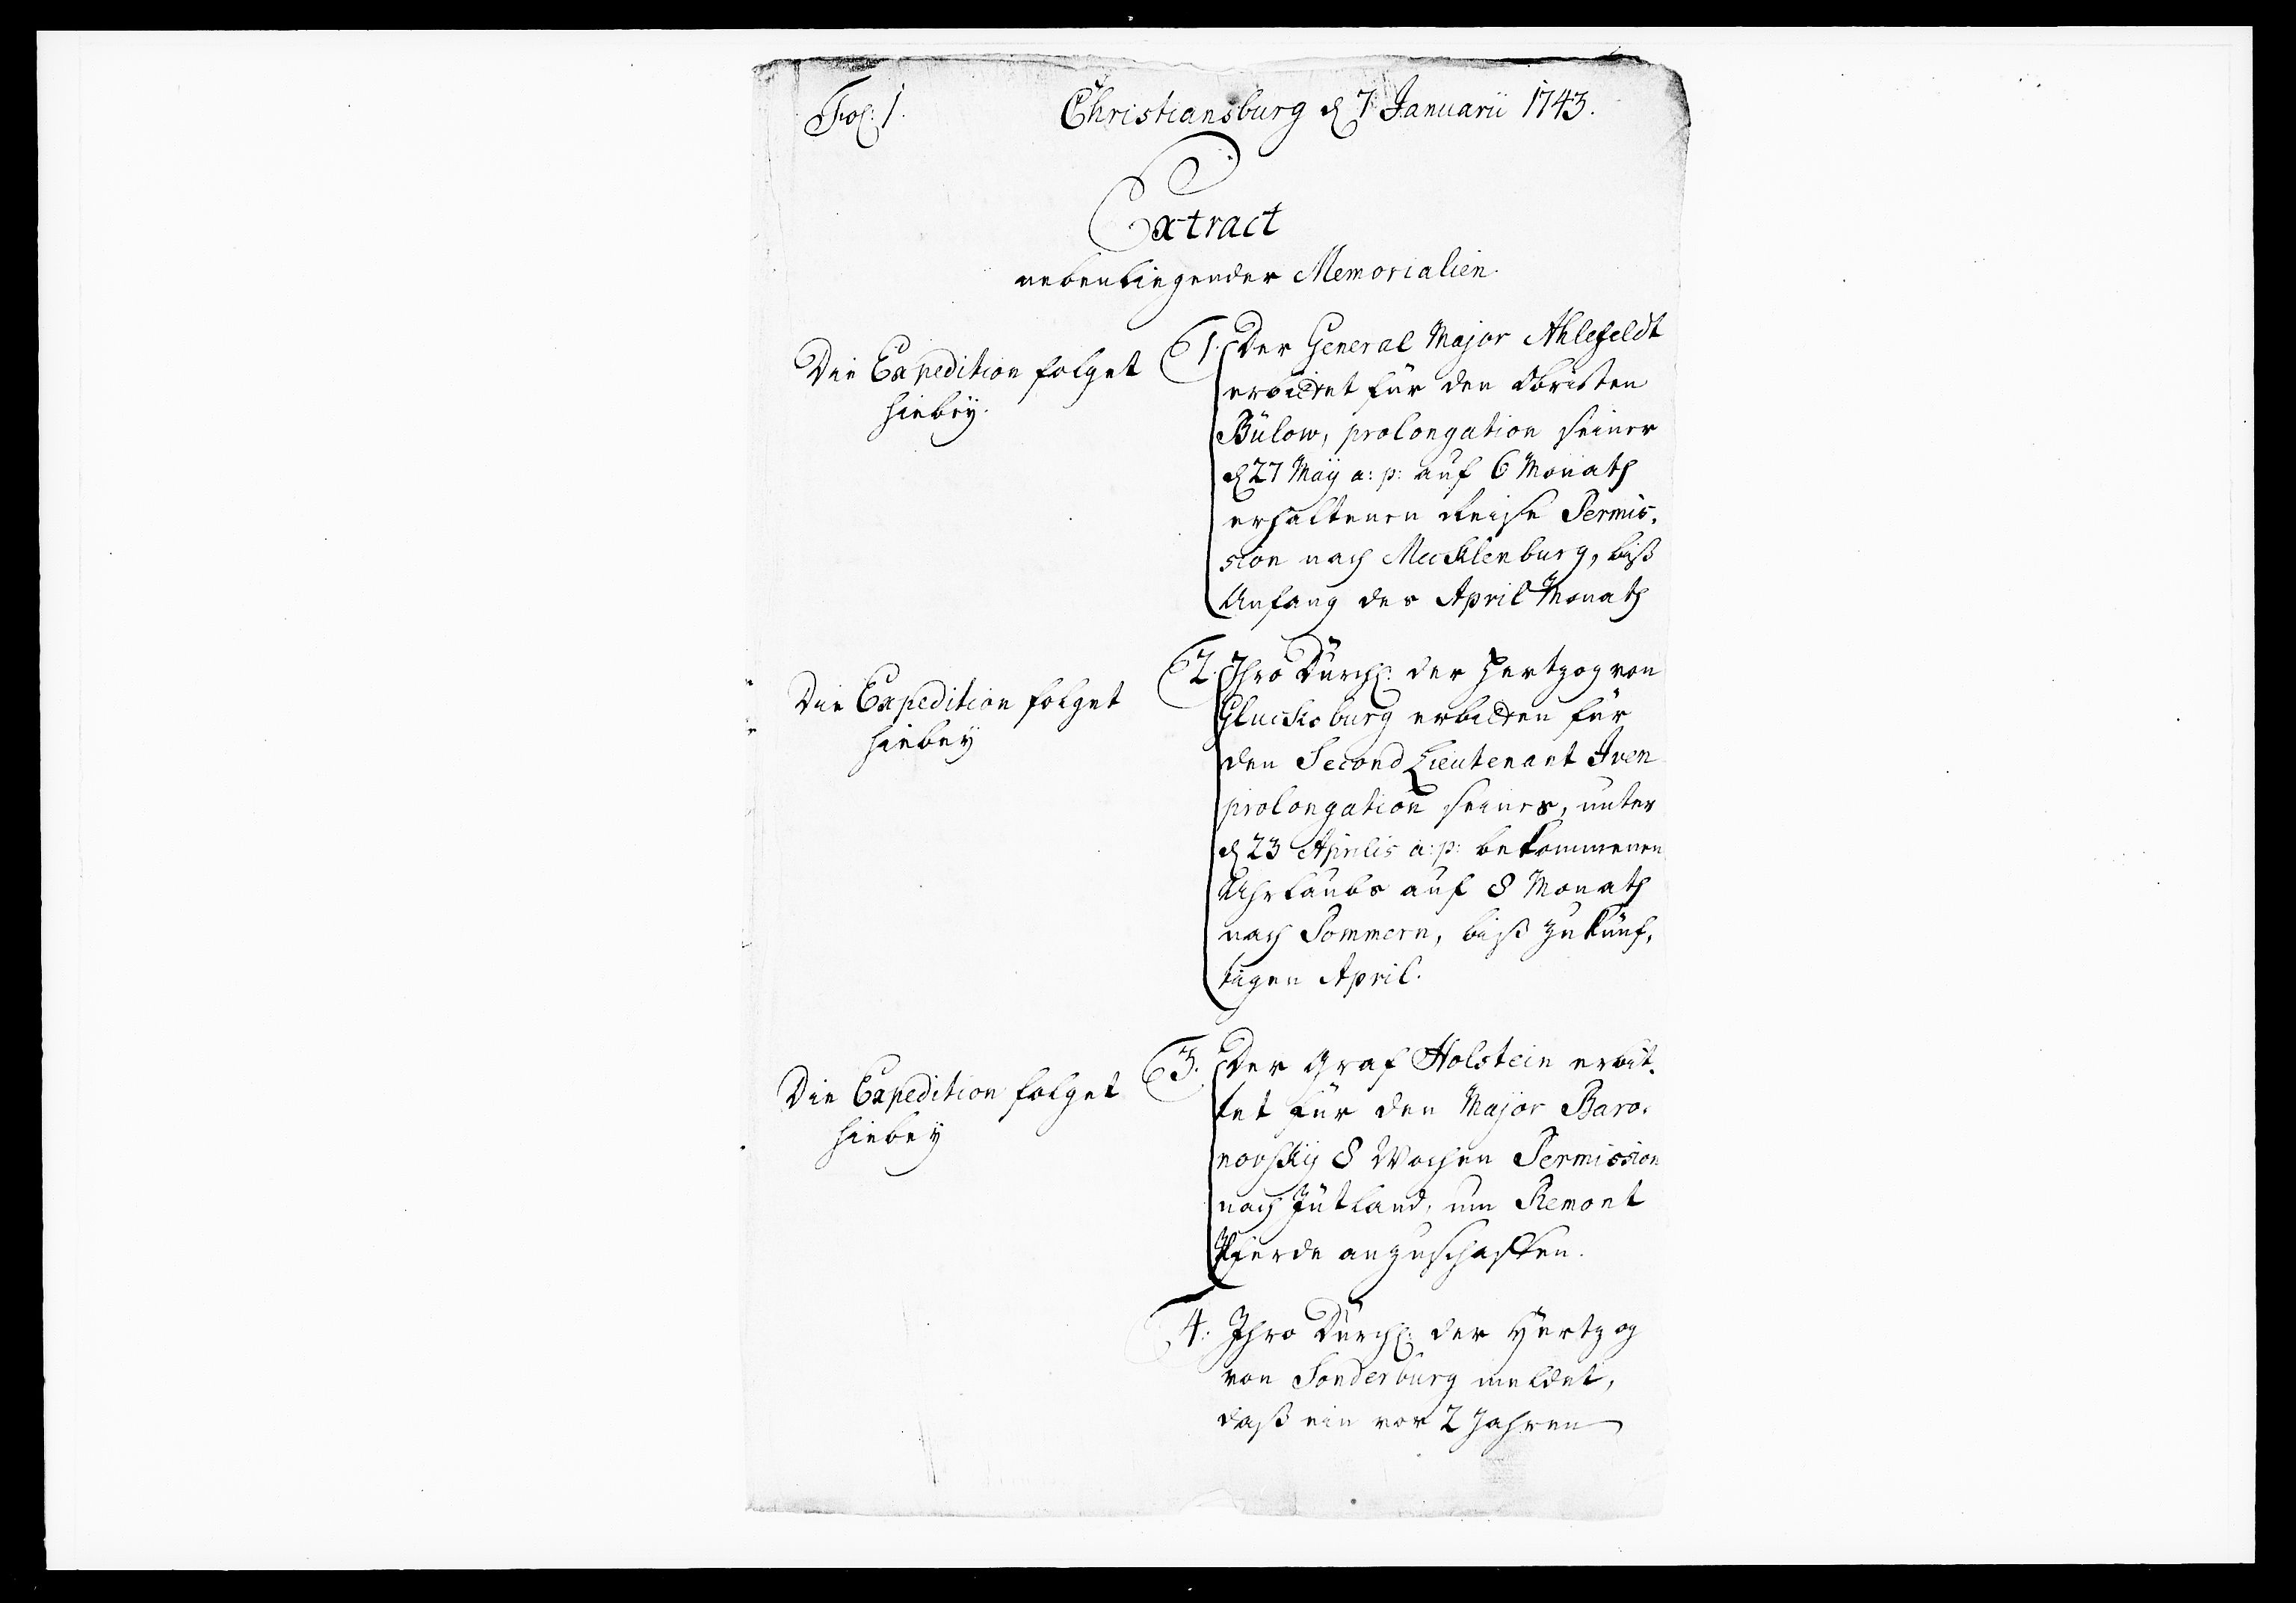 Fol: 1.
Christiansburg d 7 Januarii 1743.
Extract
nebenliegender Memorialien.
Die Expedition folget
hiebey.
1. Der General Major Ahlefeldt
erbittet für den Obristen
Bülow, prolongation seiner
d 27 Maÿ a: p: auf 6 Monath
erhaltenen Reise Permis,
sion nach Mecklenburg, biß
Anfang des April Monath
Die Expedition folget
hiebeÿ
2. Ihro Durchl: der Hertzog von
Glucksburg erbitten für
den Second Lieutenant Iven
prolongation seines, unter
d 23 Aprilis a: p: bekommenen
Uhrlaubs auf 8 Monath
nach Pommern, biß zukünf,
tigen April.
Die Expedition folget
hiebeÿ
3. Der Graf Holstein erbit,
tet für den Major Baro,
novskÿ 8 Wochen Permission
nach Jütland, um Remont
Pferde anzuschaffen.
4. Ihro Durchl: der Hertzog
von Sonderburg meldet,
daß ein vor 2 Jahren